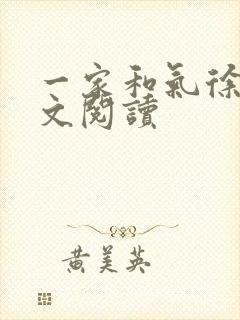 一家和氣徐
文閱讀
黃美英